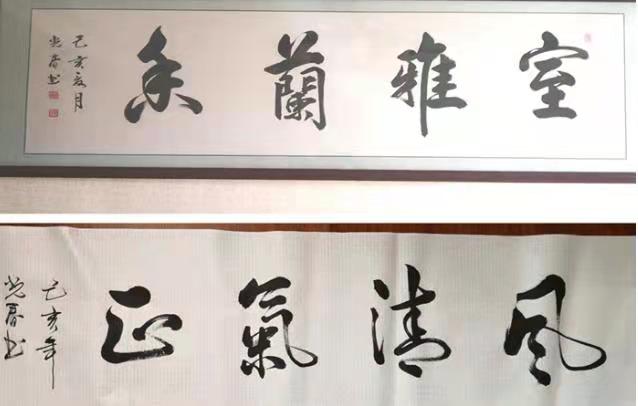 室雅蘭香
己亥夏月
光春书
风清氣正
己亥年
光春书